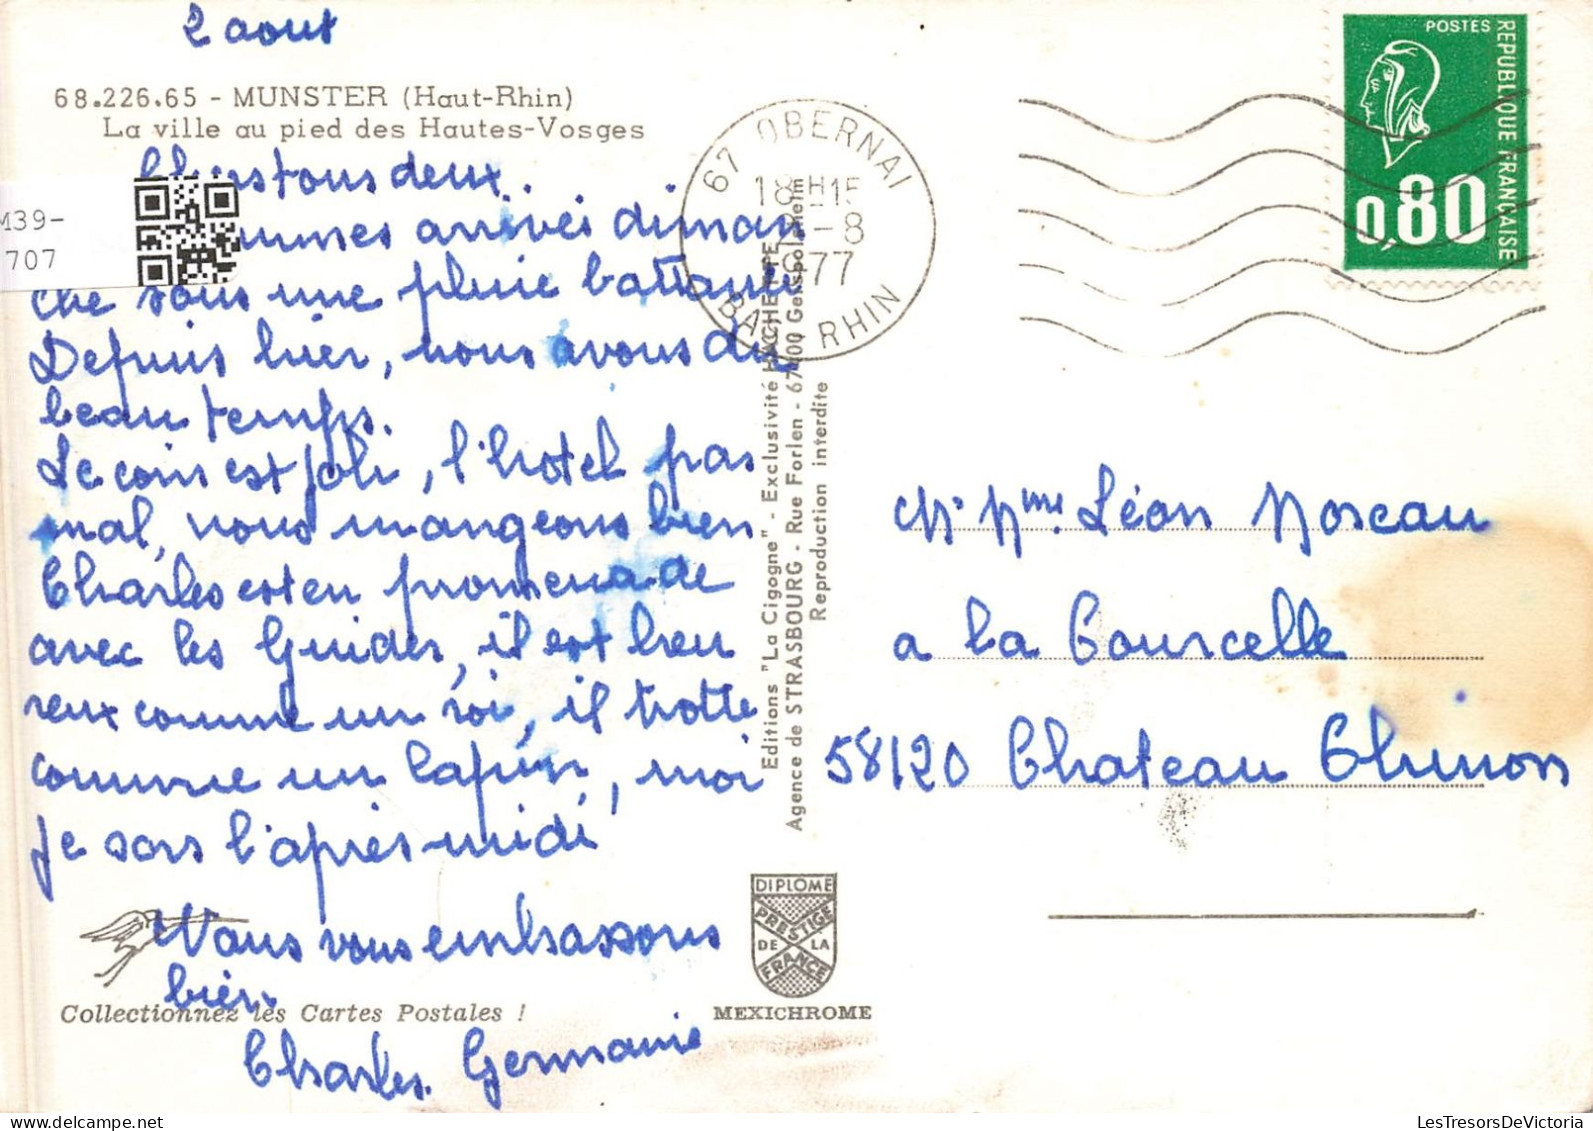 2 aout
68.226.65 - MUNSTER (Haut-Rhin)
La ville au pied des Hautes-Vosges
M39-
707
Chers tous deux.
sommes arrivés diman
che sous une pluie battante
Depuis hier, nous avons du
beau temps.
Le coin est joli, l'hotel pas
mal, nous mangeons bien
Charles est en promenade
avec les Guides, il est heu
reux comme un roi, il trotte
comme un lapin, moi
je sors l'après-midi
Nous vous embrassons
bien
Charles. Germaine
Collectionnez les Cartes Postales !
67 OBERNAI
18H15
-8
1977
BAS RHIN
Editions "La Cigogne" - Exclusivité HACHETTE
Agence de STRASBOURG - Rue Forlen - 67400 Geispolsheim
Reproduction interdite
DIPLOME
PRESTIGE
DE LA
FRANCE
MEXICHROME
POSTES
REPUBLIQUE FRANÇAISE
0,80
Mr Mme Léon Moreau
a la Courcelle
58120 Chateau Chinon
LesTresorsDeVictoria